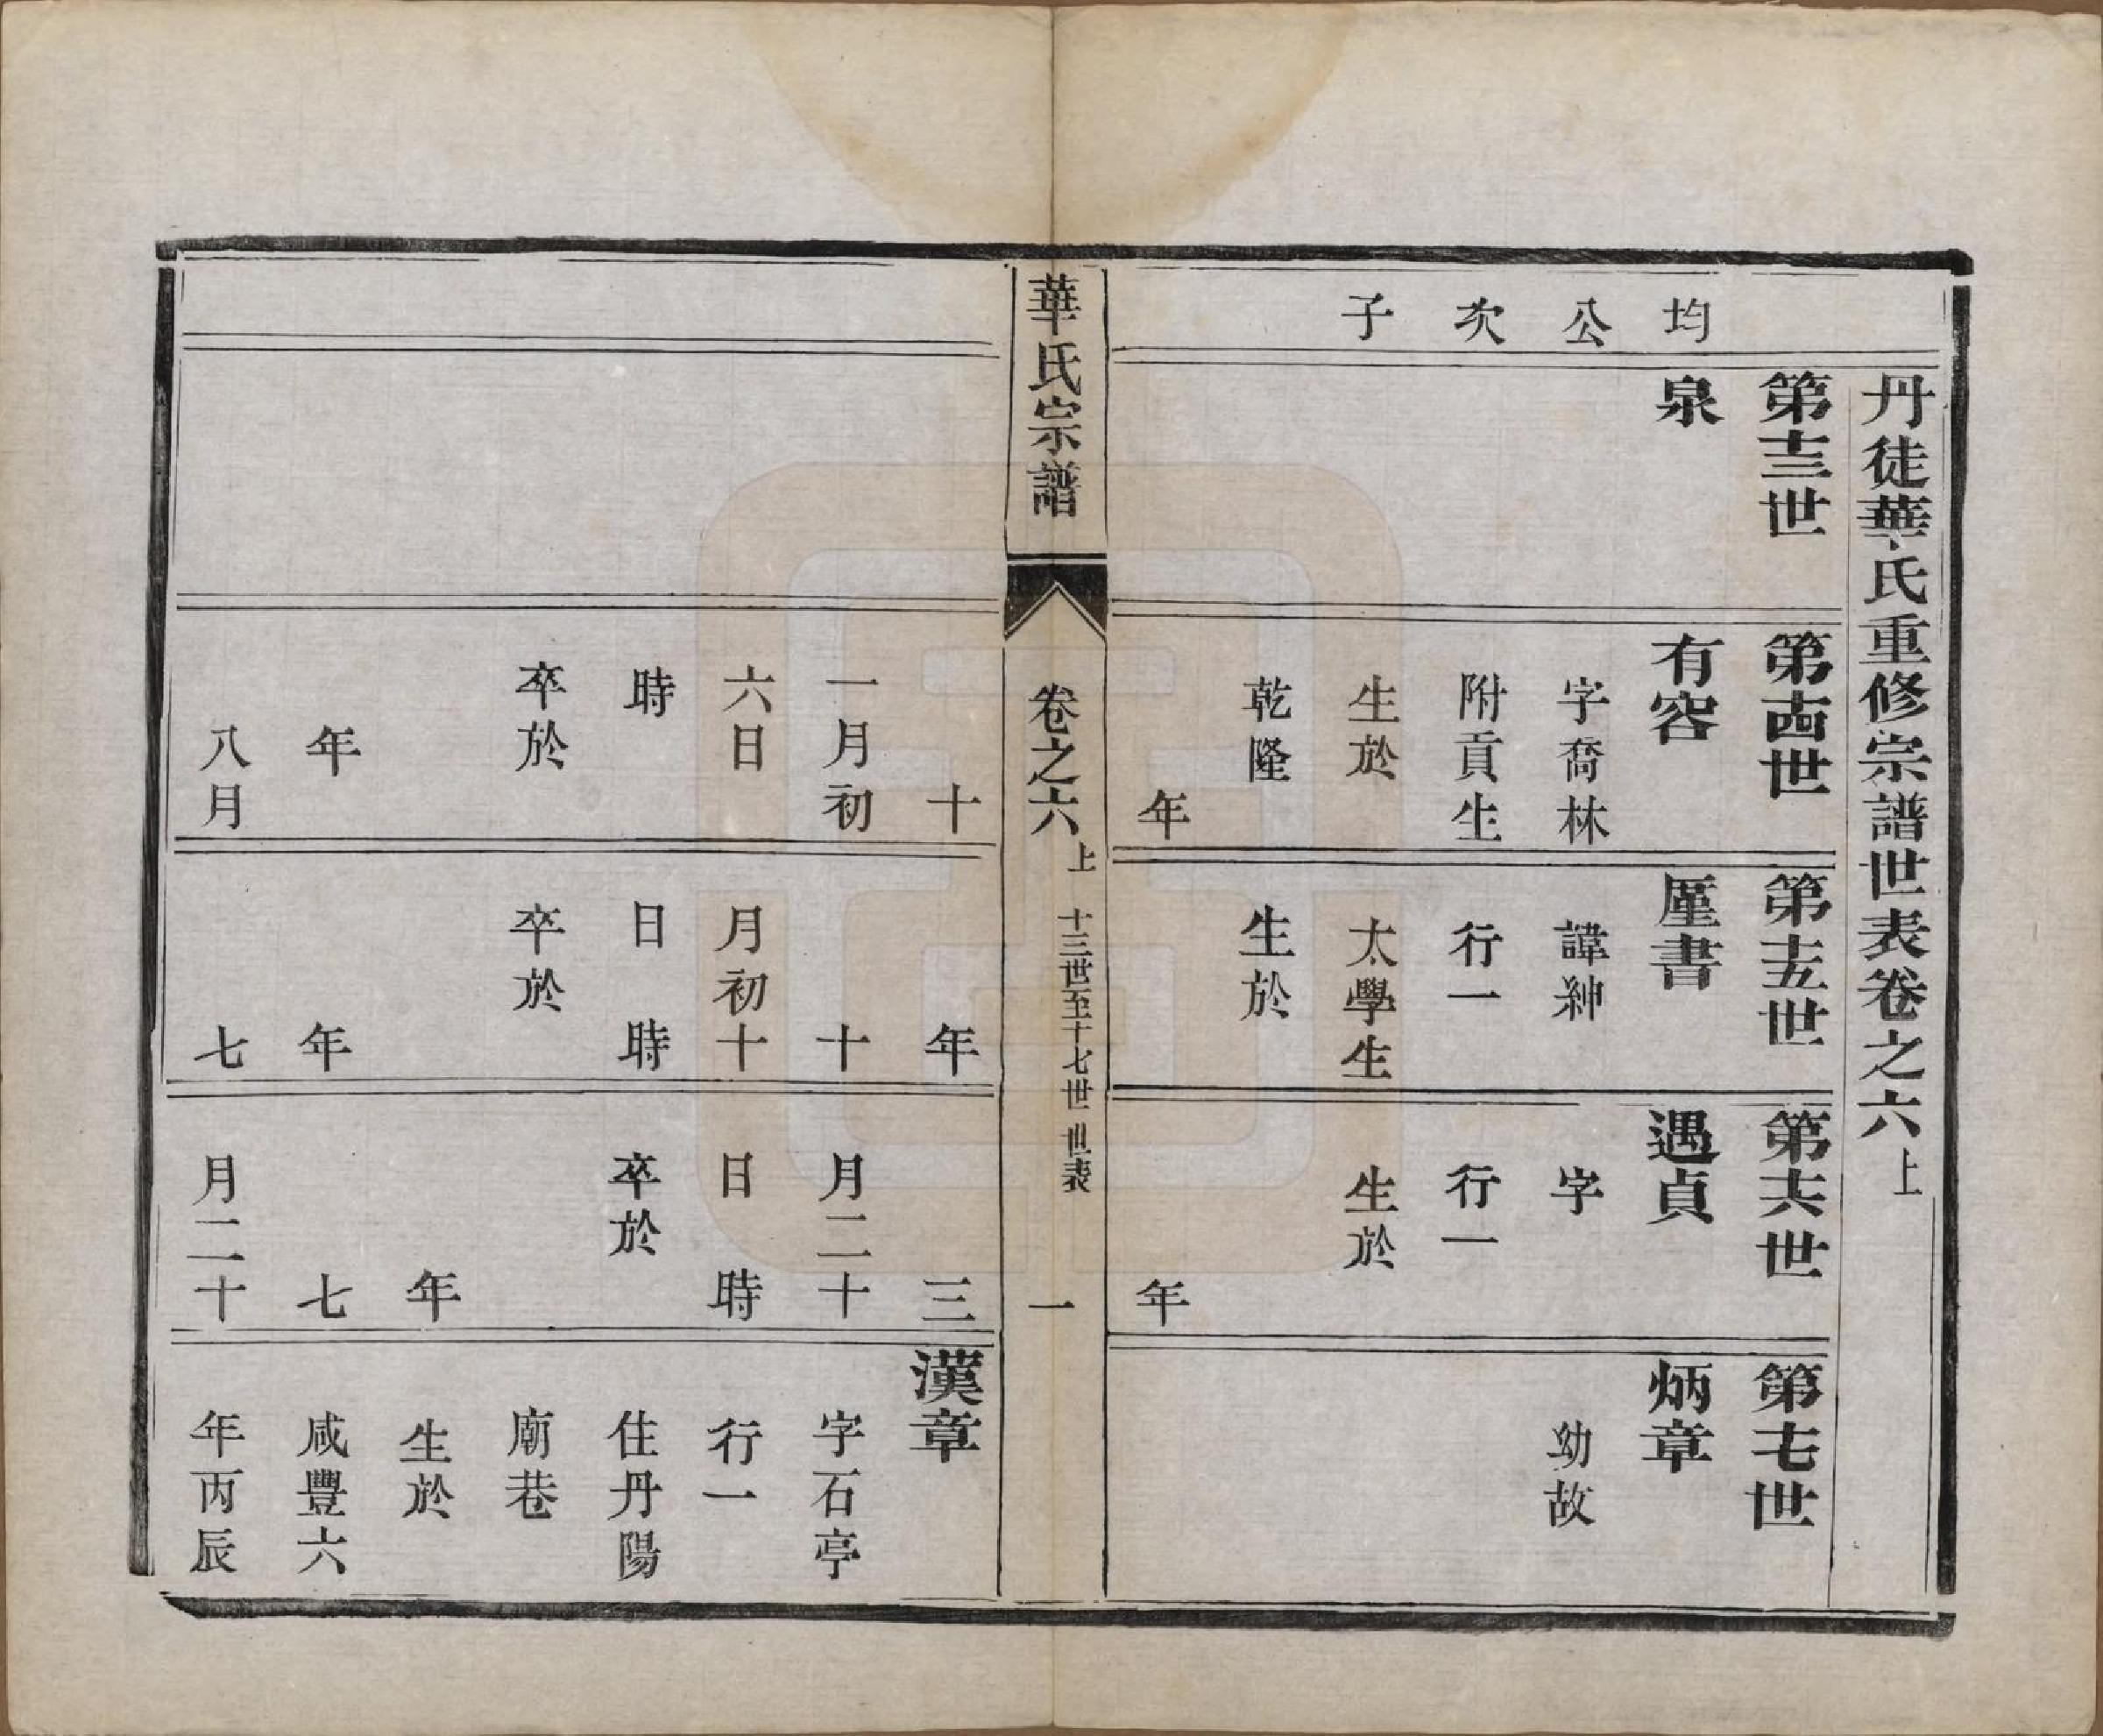 丹徒華氏重修宗譜世表卷之六上
均
公
次
子
第十三世
泉
第十四世
有容
字喬林
附貢生
生於
乾隆
年
第十五世
厪書
諱紳
行一
太學生
生於
第十六世
遇貞
字
行一
生於
年
第十七世
炳章
幼故
華氏宗譜
卷之六上
十三世至十七世 世表
一
十
一月初
六日
時
卒於
年
八月
年
十
月初十
日 時
卒於
年
七
三
月二十
日 時
卒於
年
七
月二十
漢章
字石亭
行一
住丹陽
廟巷
生於
咸豐六
年丙辰